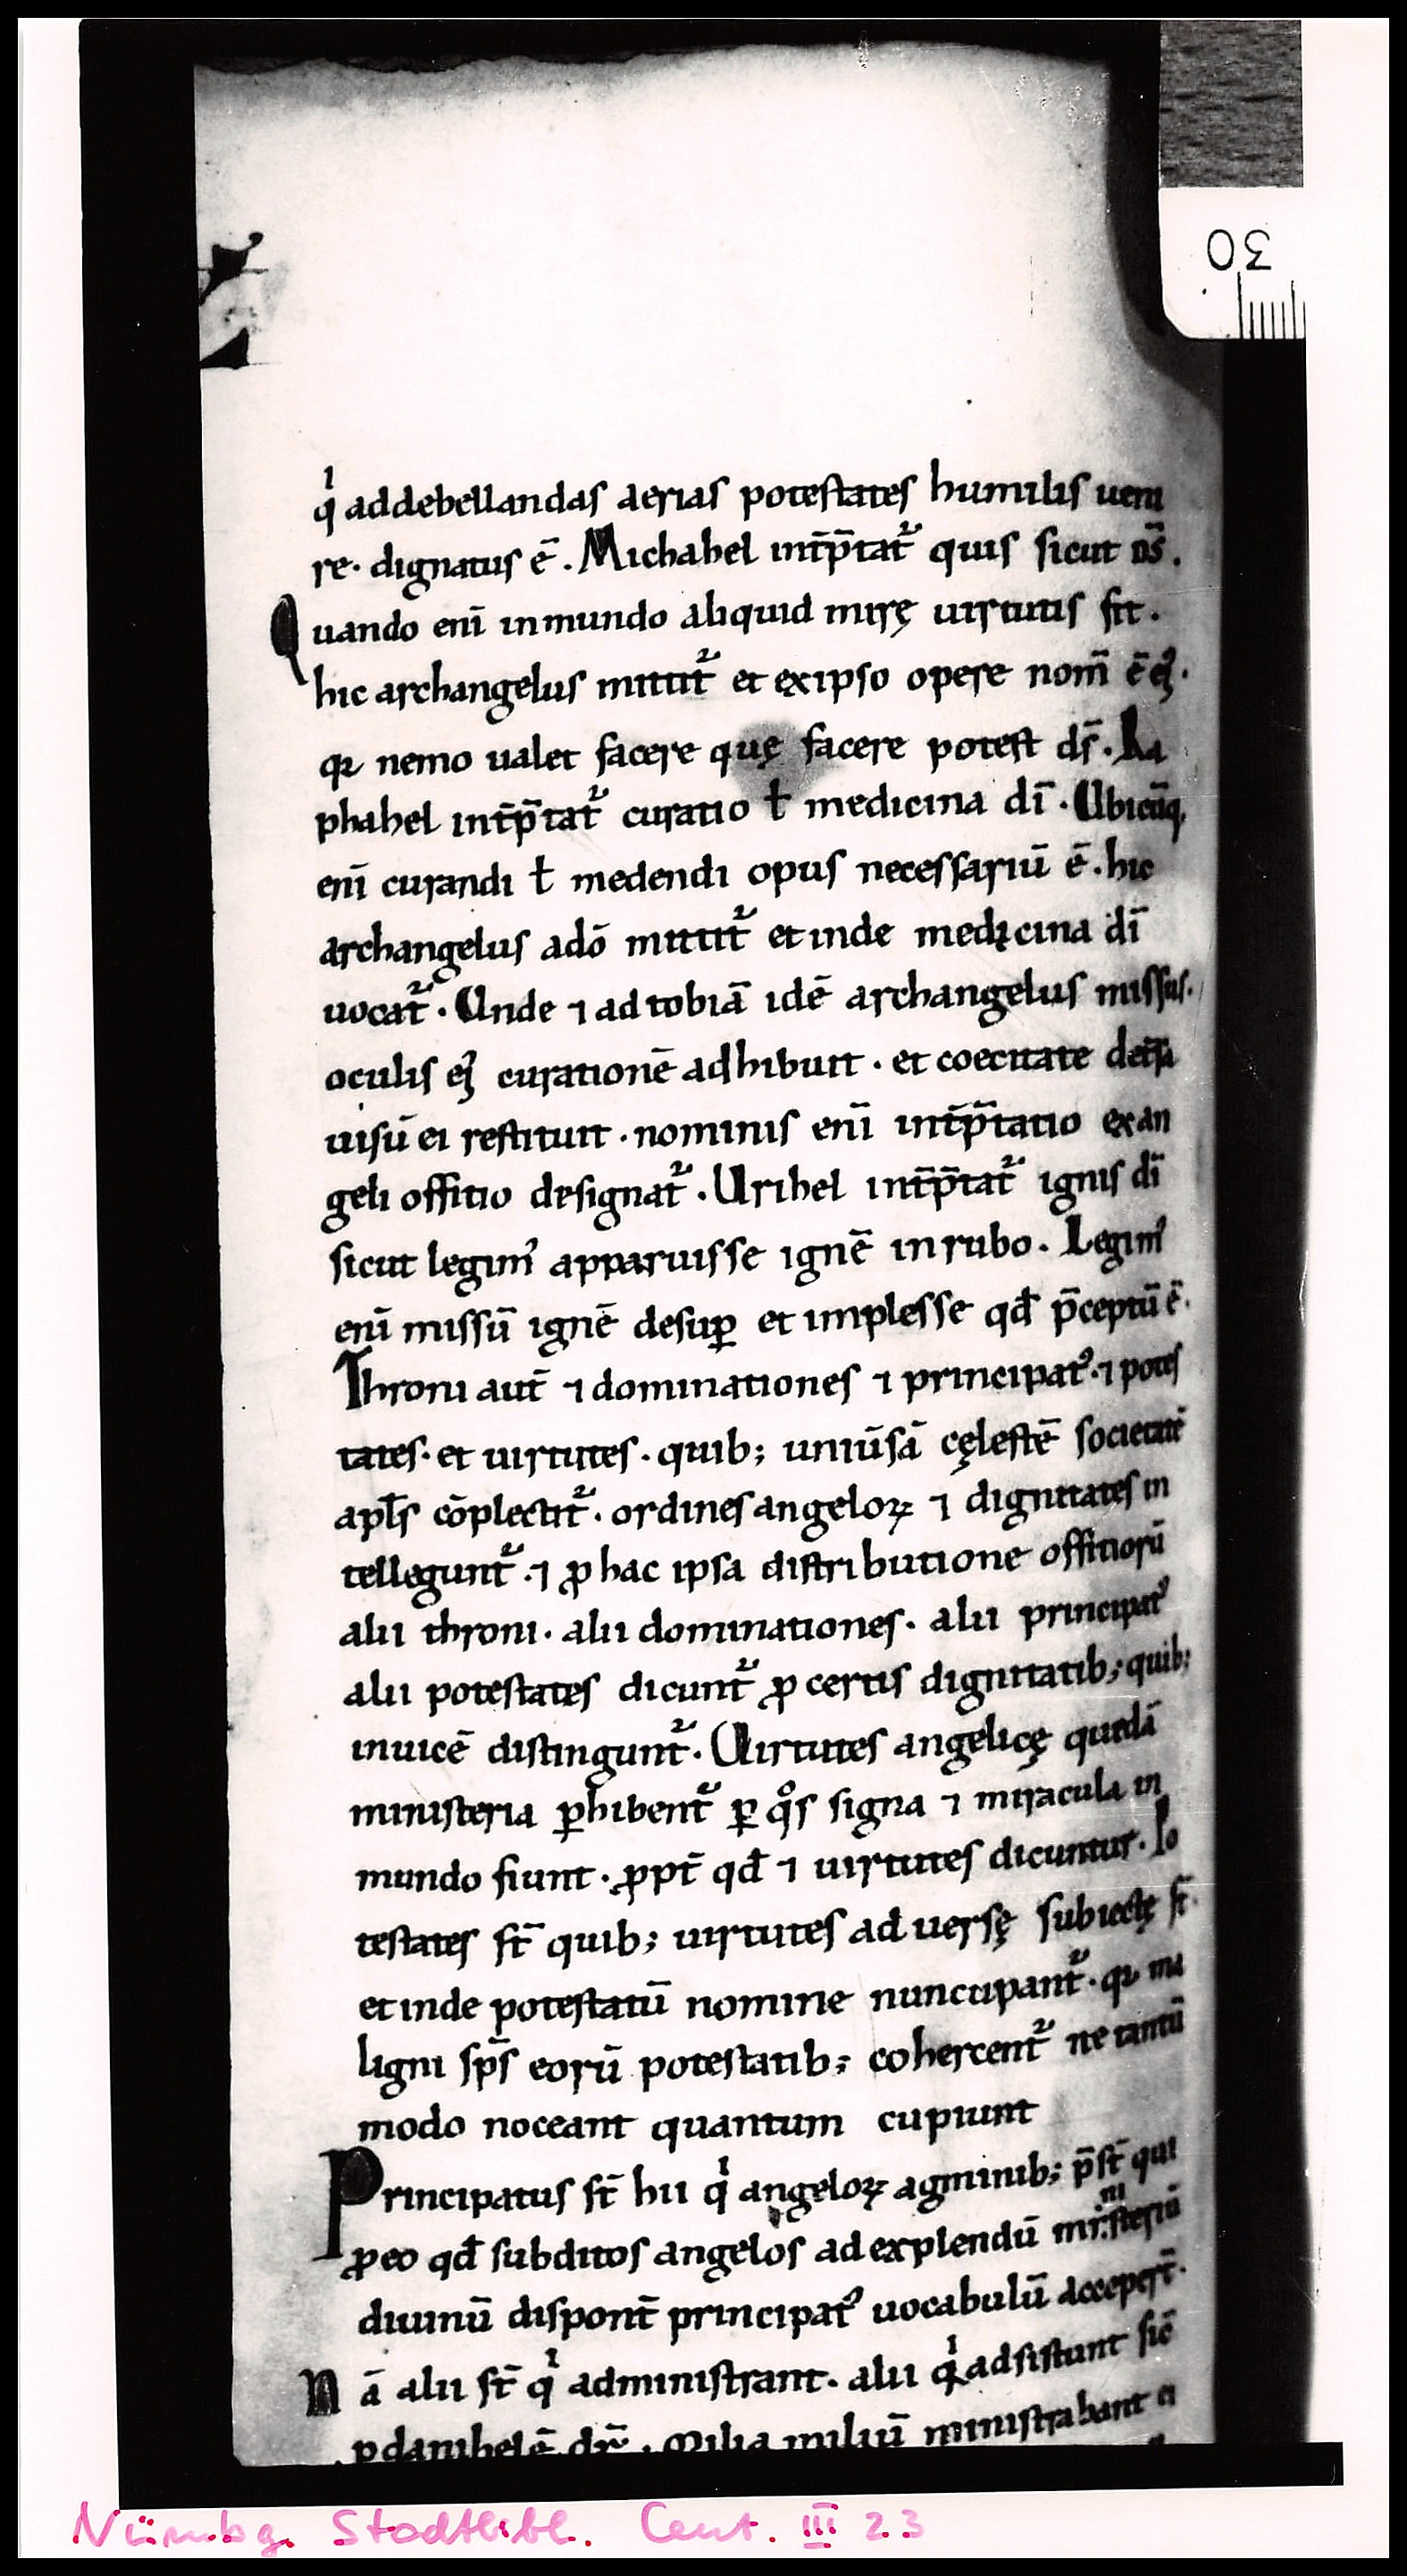 qͥ addebellandas aerias potestates humilis ueni
re· dignatus ē. Michahel int̄p̄tat᷑ quis sicut d̄s.
Quando eni̅ inmundo aliquid mirę uirtutis fit.
hic archangelus mittit᷑ et exipso opere nom̄ ē ej᷒.
qꝛ nemo ualet facere quę facere potest ds̄. Ra
phahel int̄p̄tat᷑ curatio ł medicina dī. Ubicūq,
eni̅ curandi ł medendi opus necessariū ē. hic
archangelus adō mittit᷑ et inde medicina dī
uocat᷑. Unde ⁊ ad tobiā idē archangelus missus.
oculis ej᷒ curationē adhibuit. et coecitate det̄sa
uisū ei restituit. nominis eni̅ int̄p̄tatio ex an
geli offitio designat᷑. Urihel int̄p̄tat᷑ ignis dī
sicut legim᷒ apparuisse ignē in rubo. Legim᷒
eni̅ missū ignē desuꝑ et implesse qđ p̄ceptū ē.
Throni aut̄ ⁊ dominationes ⁊ principat᷒. ⁊ potes
tates. et uirtutes. quib; uniūsā cęlestē societatē
apl̄s cōplectit᷑. ordines angeloꝝ ⁊ dignitates in
tellegunt᷑. ⁊ ꝓ hac ipsa distributione offitiorū
alii throni. alii dominationes. alii principat᷒
alii potestates dicunt᷑ ꝓ certis dignitatib; quib;
inuicē distingunt᷑. Uirtutes angelicę quędā
ministeria ꝑhibent᷑ ꝑ qͦs signa ⁊ miracula in
mundo fiunt. ꝓpt̄ qđ ⁊ uirtutes dicuntur. Po
testates st̄ quib; uirtutes aduersę subiectę st̄.
et inde potestatū nomine nuncupant᷑. qꝛ ma
ligni sp̄s eorū potestatib; cohercent᷑ ne tantū
modo noceant quantum cupiunt
Principatus st̄ hii qͥ angeloꝝ agminib; p̄st̄ qui
ꝓeo qđ subditos angelos ad explendū ministeriū
diuinū dispont̄ principat᷒ uocabulū acceper̄t.
Nā alii st̄ qͥ administrant. alii qͥ adsistunt sic̄
ꝑ danihelē dr̄. Milia miliū ministrabant ei
30
Nürnbg. Stadtbibl. Cent. III 23